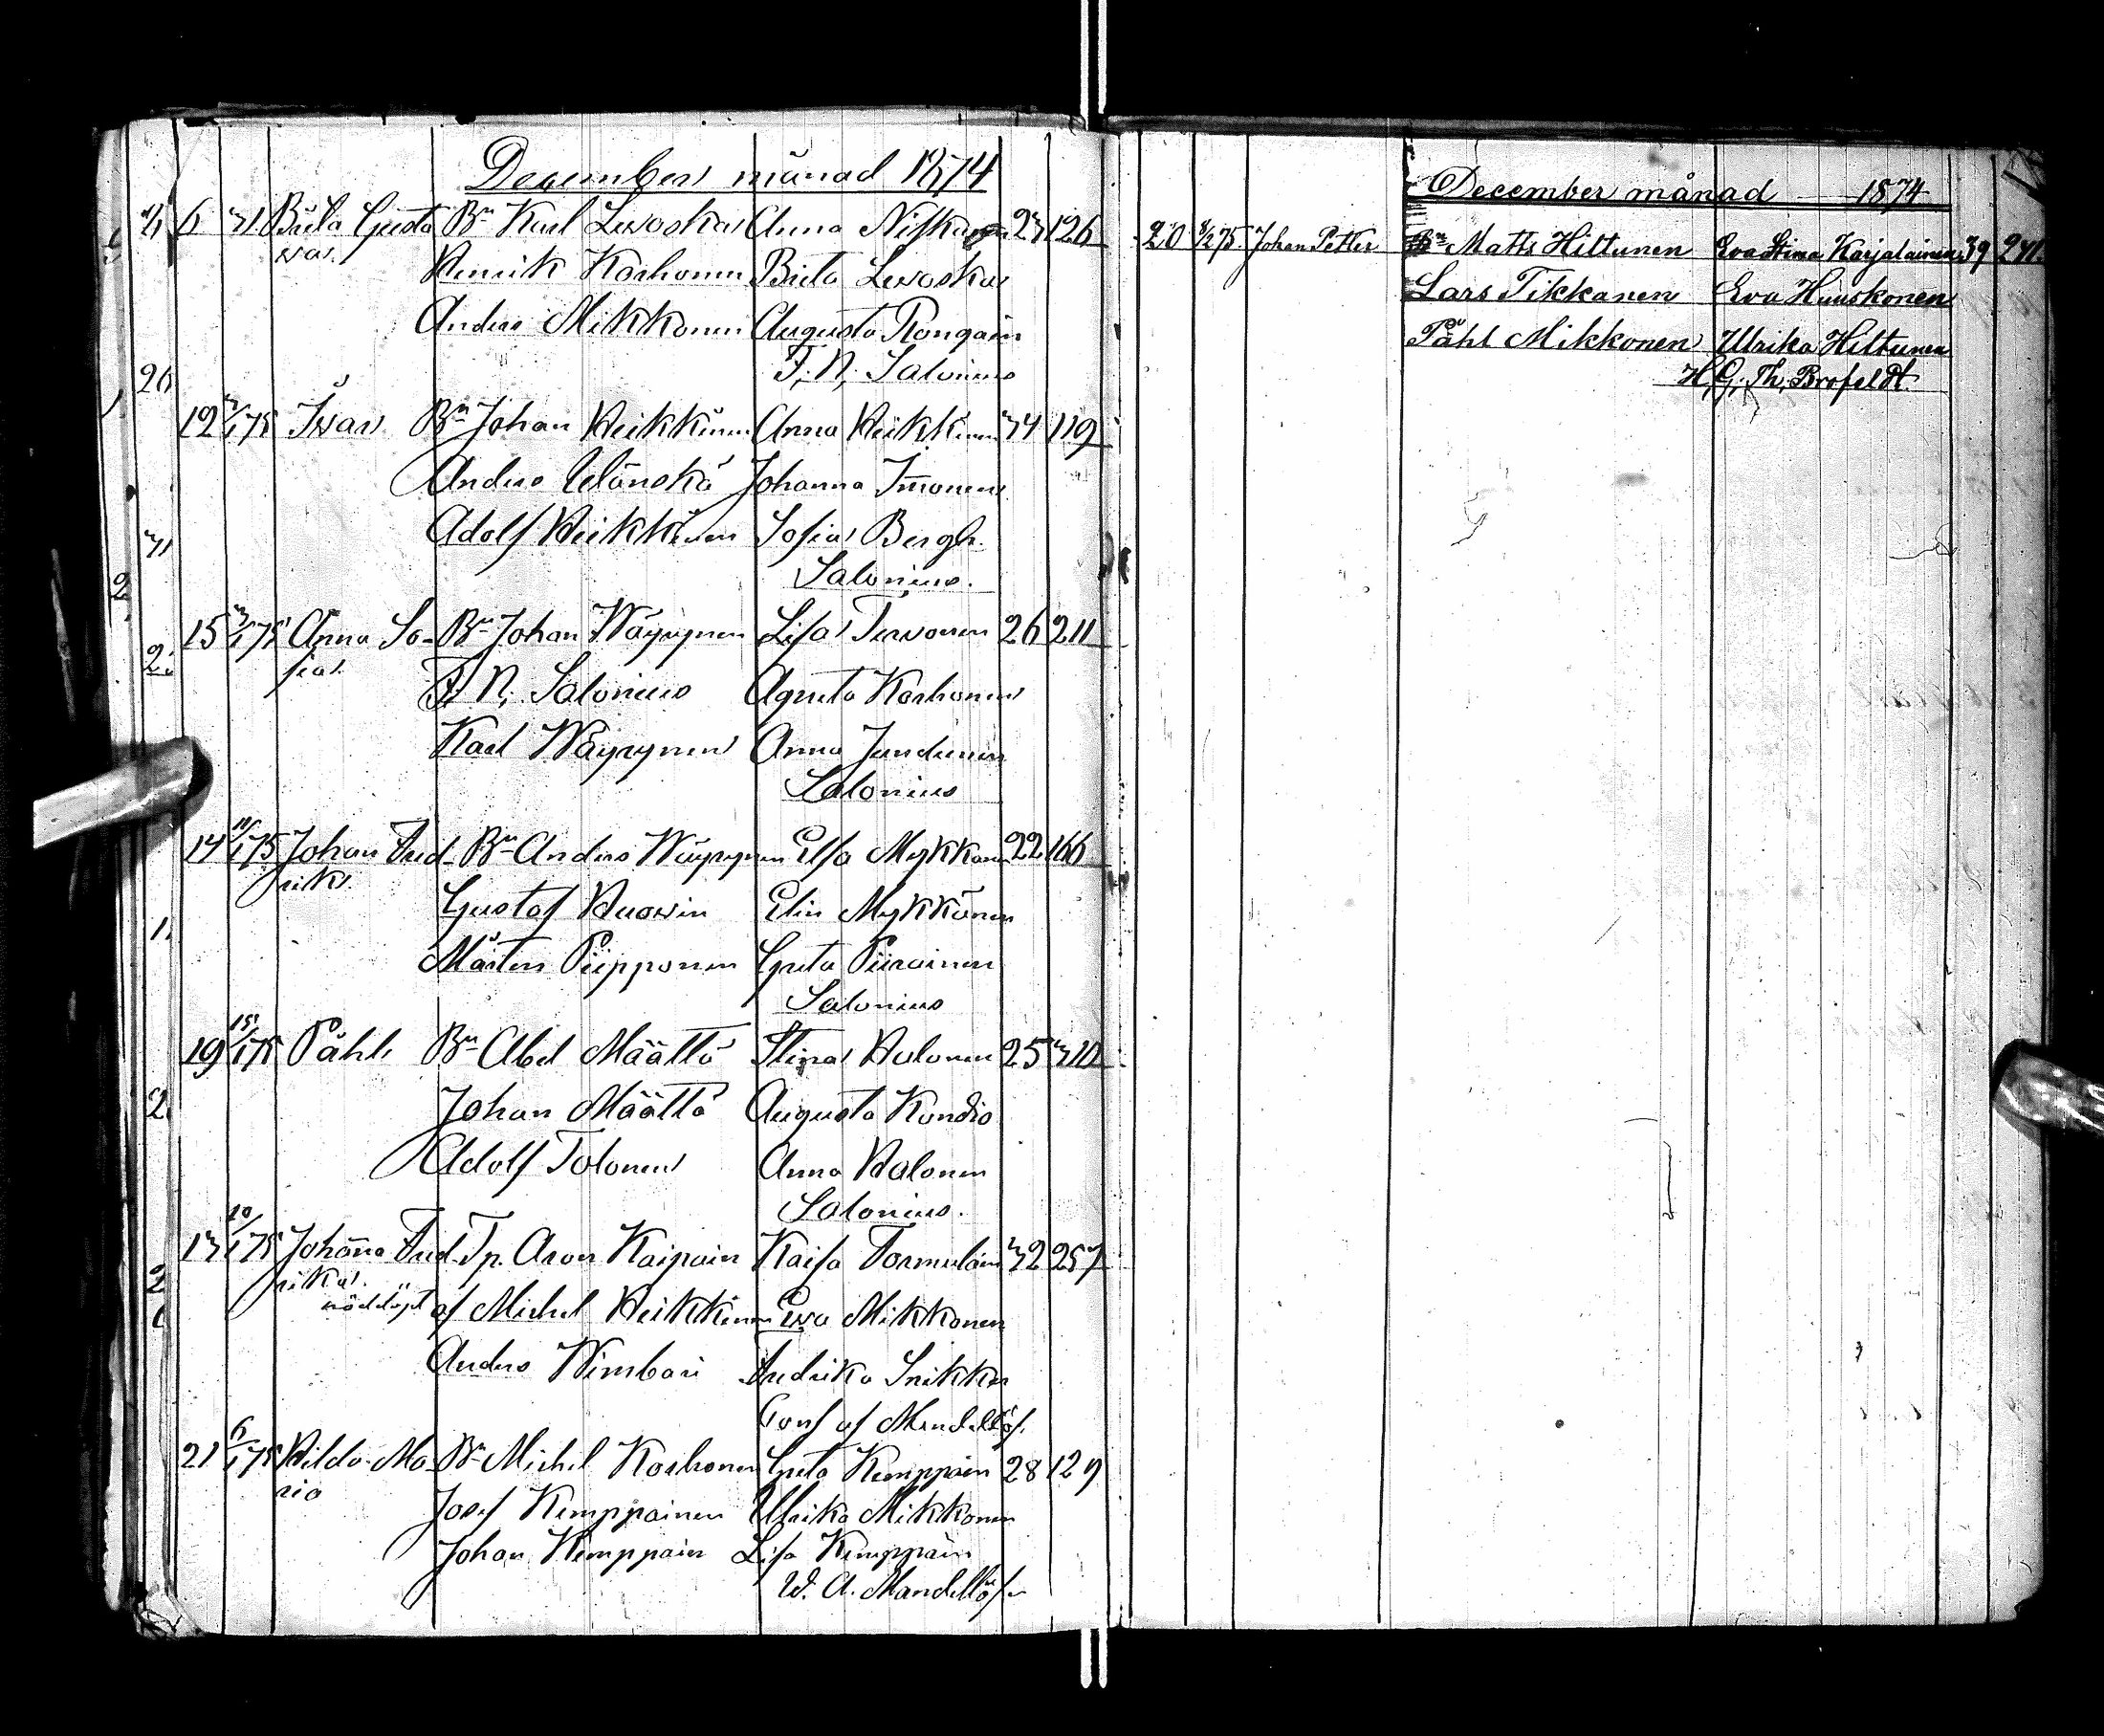 December månad 1874
6 31 Brita Gusta Bn Karl Lewoska Anna Niskanen 23 126
wa. Henrik Korhonen Brita Lewoska
Anders Mikkonen Augusta Rongain
F. N. Salonius
12 3/1 75 Iwar Bn Johan Heikkinen Anna Heikkinen 34 119
Anders Wänskä Johanna Imonen
Adolf Heikkinen Sofia Bergh.
Salonius.
15 3/1 75 Anna So- Bn Johan Wäyrynen Lisa Terwonen 26 211
fia. F. N. Salonius Agneta Korhonen
Karl Wäyrynen Anna Jundunen
Salonius
14 11/1 75 Johan Fred- Bn Anders Wäyrynen Elsa Mykkänen 22 166
rik. Gustaf Huowin Elin Mykkänen
Mårten Piipponen Greta Piirainen
Salonius
19 15/1 75 Påhl Bn Abel Määttä Stina Halonen 25 310
Johan Määttä Augusta Kondio
Adolf Tolonen Anna Halonen
Salonius.
13 10/1 75 Johanna Fred- Tp. Aron Kaipain Kaisa Tormulain 32 257
rika. nöddöpt af Michel Heikkinen Ewa Mikkonen
Anders Wimbari Fredrika Snikker
Conf af Mandellöf.
21 6/1 75 Hilda Ma- Bn Michel Korhonen Greta Kemppain 28 129
ria Josef Kemppainen Ulrika Mikkonen
Johan Kemppain Lisa Kemppain
W. A. Mandellöf
December månad 1874
20 8/2 75. Johan Petter Bn Matts Hiltunen Eva Stina Karjalainen 39 241.
Lars Tikkanen Eva Huuskonen
Påhl Mikkonen Ulrika Hiltunen
H. G. Th. Brofeldt.